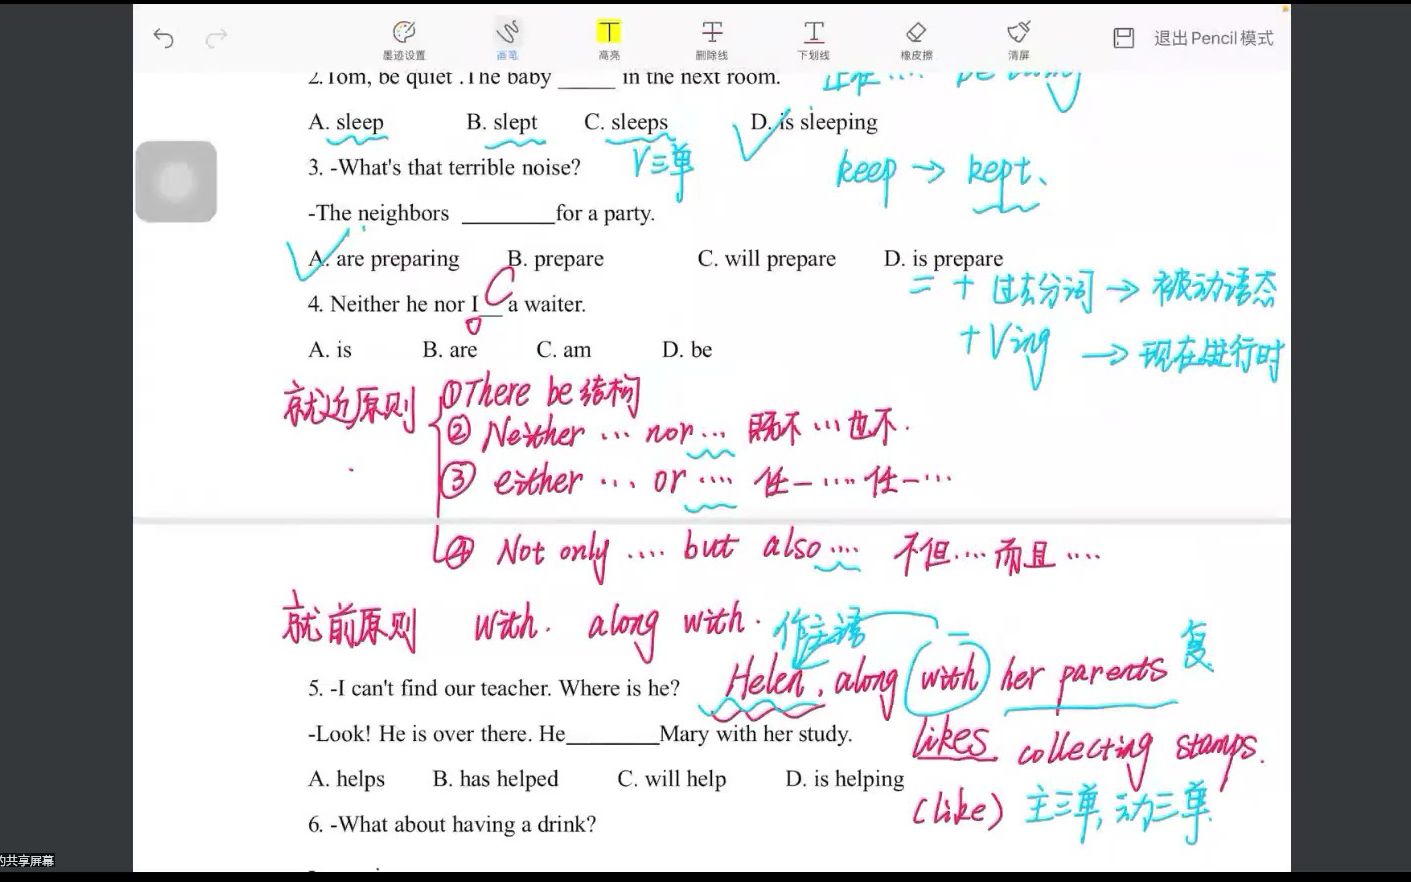 墨迹设置 画笔 高亮 删除线 下划线 橡皮擦 清屏 退出Pencil模式
2.Tom, be quiet .The baby _____ in the next room. 正在....
A. sleep B. slept C. sleeps D. is sleeping
V三单 keep → kept、
3. -What's that terrible noise?
-The neighbors ________for a party.
A. are preparing B. prepare C. will prepare D. is prepare
+ 过去分词 → 被动语态
4. Neither he nor I__ a waiter. C
+ Ving → 现在进行时
A. is B. are C. am D. be
就近原则 ①There be结构
② Neither ... nor ... 既不 ... 也不.
③ either ... or .... 任一 .... 任一 ...
④ Not only .... but also .... 不但.... 而且 ....
就前原则 with. along with. 作主语
5. -I can't find our teacher. Where is he? Helen, along with her parents 复
-Look! He is over there. He________Mary with her study. likes collecting stamps.
A. helps B. has helped C. will help D. is helping
(like) 主三单, 动三单
6. -What about having a drink?
的共享屏幕